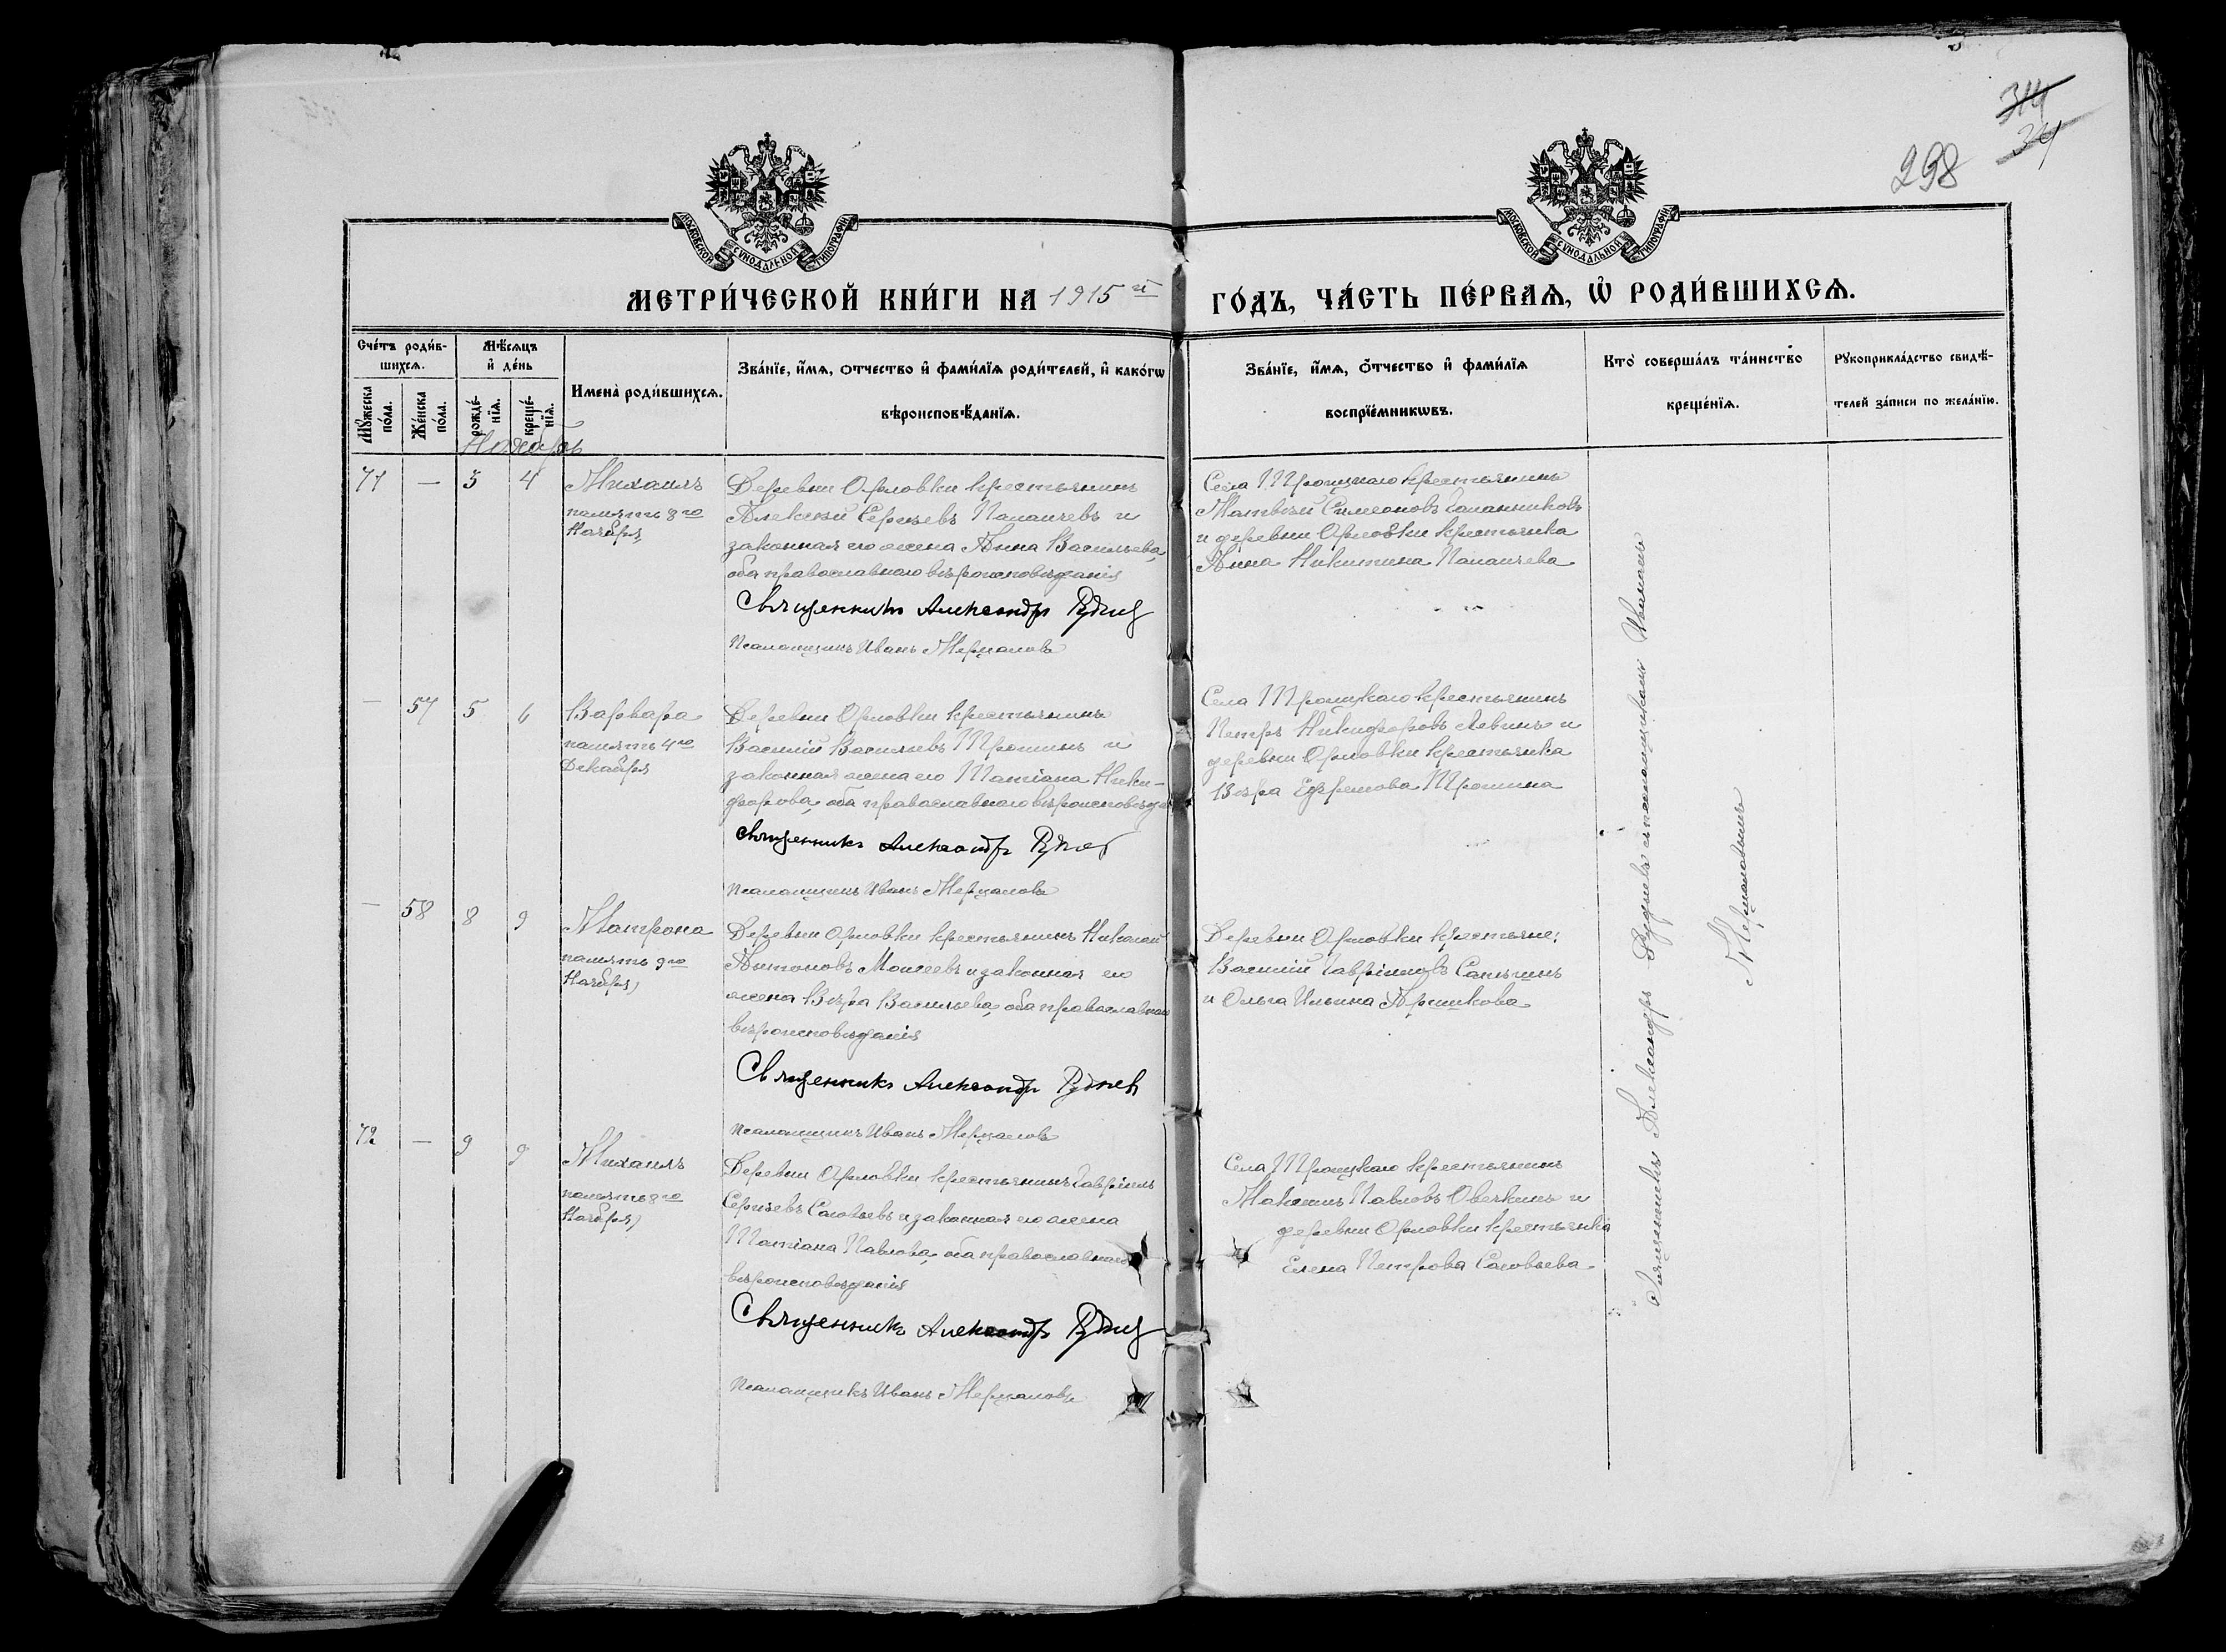 314
34
298
МОСКОВСКОЙ СУНОДАЛЬНОЙ ТИПОГРАФІИ
МОСКОВСКОЙ СУНОДАЛЬНОЙ ТИПОГРАФІИ
МЕТРИ́ЧЕСКОЙ КНИ́ГИ НА 1915 й ГО́ДЪ, ЧА́СТЬ ПЕ́РВАѦ, Ѡ҆ РОДИ́ВШИХСѦ.
Сче́тъ роди́в-
шихсѧ.
Мꙋ́жеска
по́ла.
Же́нска
по́ла.
Мѣ́сѧцъ
и҆ де́нь
рожде́-
нїѧ.
креще́-
нїѧ.
Имена̀ роди́вшихсѧ.
Зва́нїе, и҆́мѧ, ѻтчество и҆ фами́лїѧ роди́телей, и҆ како́гѡ
вѣроисповѣ́данїѧ.
Зва́нїе, и҆́мѧ, ѻ҆́тчество и҆ фами́лїѧ
воспрїе́мникѡвъ.
Кто̀ соверша́лъ та́инство
креще́нїѧ.
Рꙋкоприкла́дство свидѣ́-
телей за́писи по жела́нїю.
Ноябрь
71 — 3 4
Михаилъ
память 8го
Ноября
Деревни Орловки крестьянинъ
Алексѣй Сергѣевъ и
законная его жена Анна Васильева,
оба православнаго вѣроисповѣданія
Священникъ Александръ Руднев
Псаломщикъ Иванъ Мерцаловъ
Села Троицкаго крестьянинъ
Матвѣй Симеоновъ
и деревни Орловки крестьянка
Анна Никитина
— 57 5 6
Варвара
память 4го
Декабря
Деревни Орловки крестьянинъ
Василій Васильевъ Трошинъ и
законная жена его Татіана Ники-
форова, оба православнаго вѣроисповѣд
Священникъ Александръ Руднев
Псаломщикъ Иванъ Мерцаловъ
Села Троицкаго крестьянинъ
Петръ Никифоровъ Левинъ и
деревни Орловки крестьянка
Вѣра Ефремова Трошина
— 58 8 9
Матрона
память 9го
Ноября
Деревни Орловки крестьянинъ Николай
Антоновъ Моисеевъ и законная его
жена Вѣра Васильева, оба православнаго
вѣроисповѣданія
Священникъ Александръ Руднев
Псаломщикъ Иванъ Мерцаловъ
Деревни Орловки крестьяне:
Василій Гавріиловъ
и Ольга Ильина
72 — 9 9
Михаилъ
память 8го
Ноября
Деревни Орловки крестьянинъ Гавріилъ
Сергѣевъ Соловьевъ и законная его жена
Татіана Павлова, оба православнаго
вѣроисповѣданія
Священникъ Александръ Руднев
Псаломщикъ Иванъ Мерцаловъ
Села Троицкаго крестьянинъ
Максимъ Павловъ Овечкинъ и
деревни Орловки крестьянка
Елена Петрова Соловьева
Священникъ Александръ Рудневъ съ псаломщикомъ Иваномъ
Мерцаловымъ